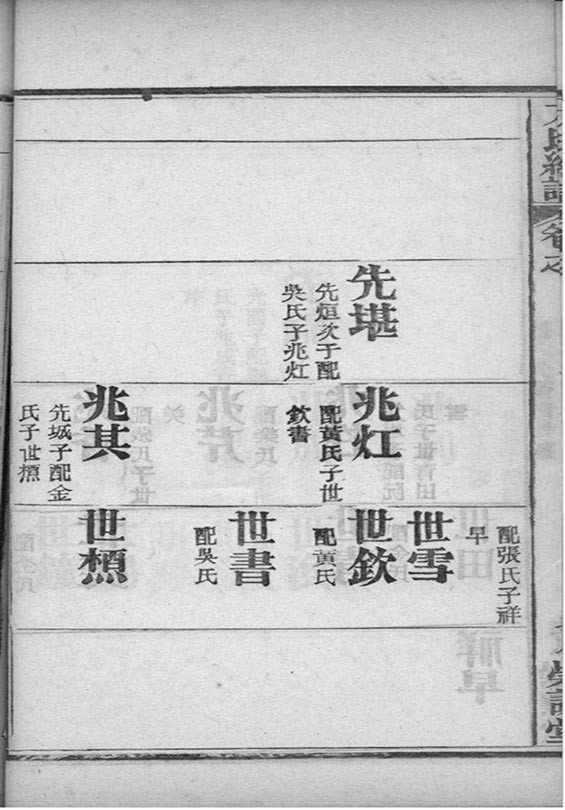 氏總譜
卷之
先堪
先烜次于配
吳氏子兆灴
兆灴
配黃氏子世
欽書
兆其
先城子配金
氏子世
配張氏子祥
早
世雪
世欽
配黃氏
世書
配吳氏
世